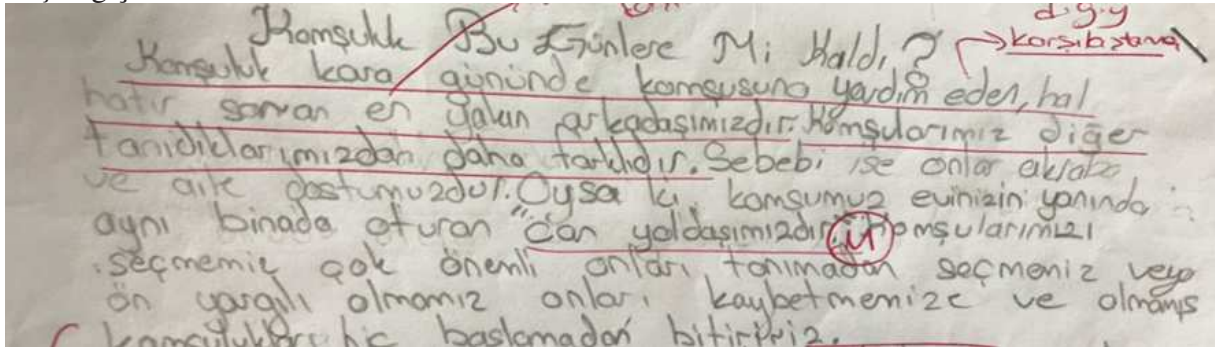 d.g.y
Komşuluk Bu Günlere Mi Kaldı?
karşılaştırma
Komşuluk kara gününde komşusuna yardım eden, hal
hatır soran en yakın arkadaşımızdır. Komşularımız diğer
tanıdıklarımızdan daha farklıdır. Sebebi ise onlar akraba
ve aile dostumuzdur. Oysa ki komşumuz evinizin yanında
aynı binada oturan "can yoldaşımızdır. Komşularımızı
seçmemiz çok önemli onları tanımadan seçmeniz veya
ön yargılı olmamız onları kaybetmemize ve olmamış
komşulukları hiç başlamadan bitiririz.